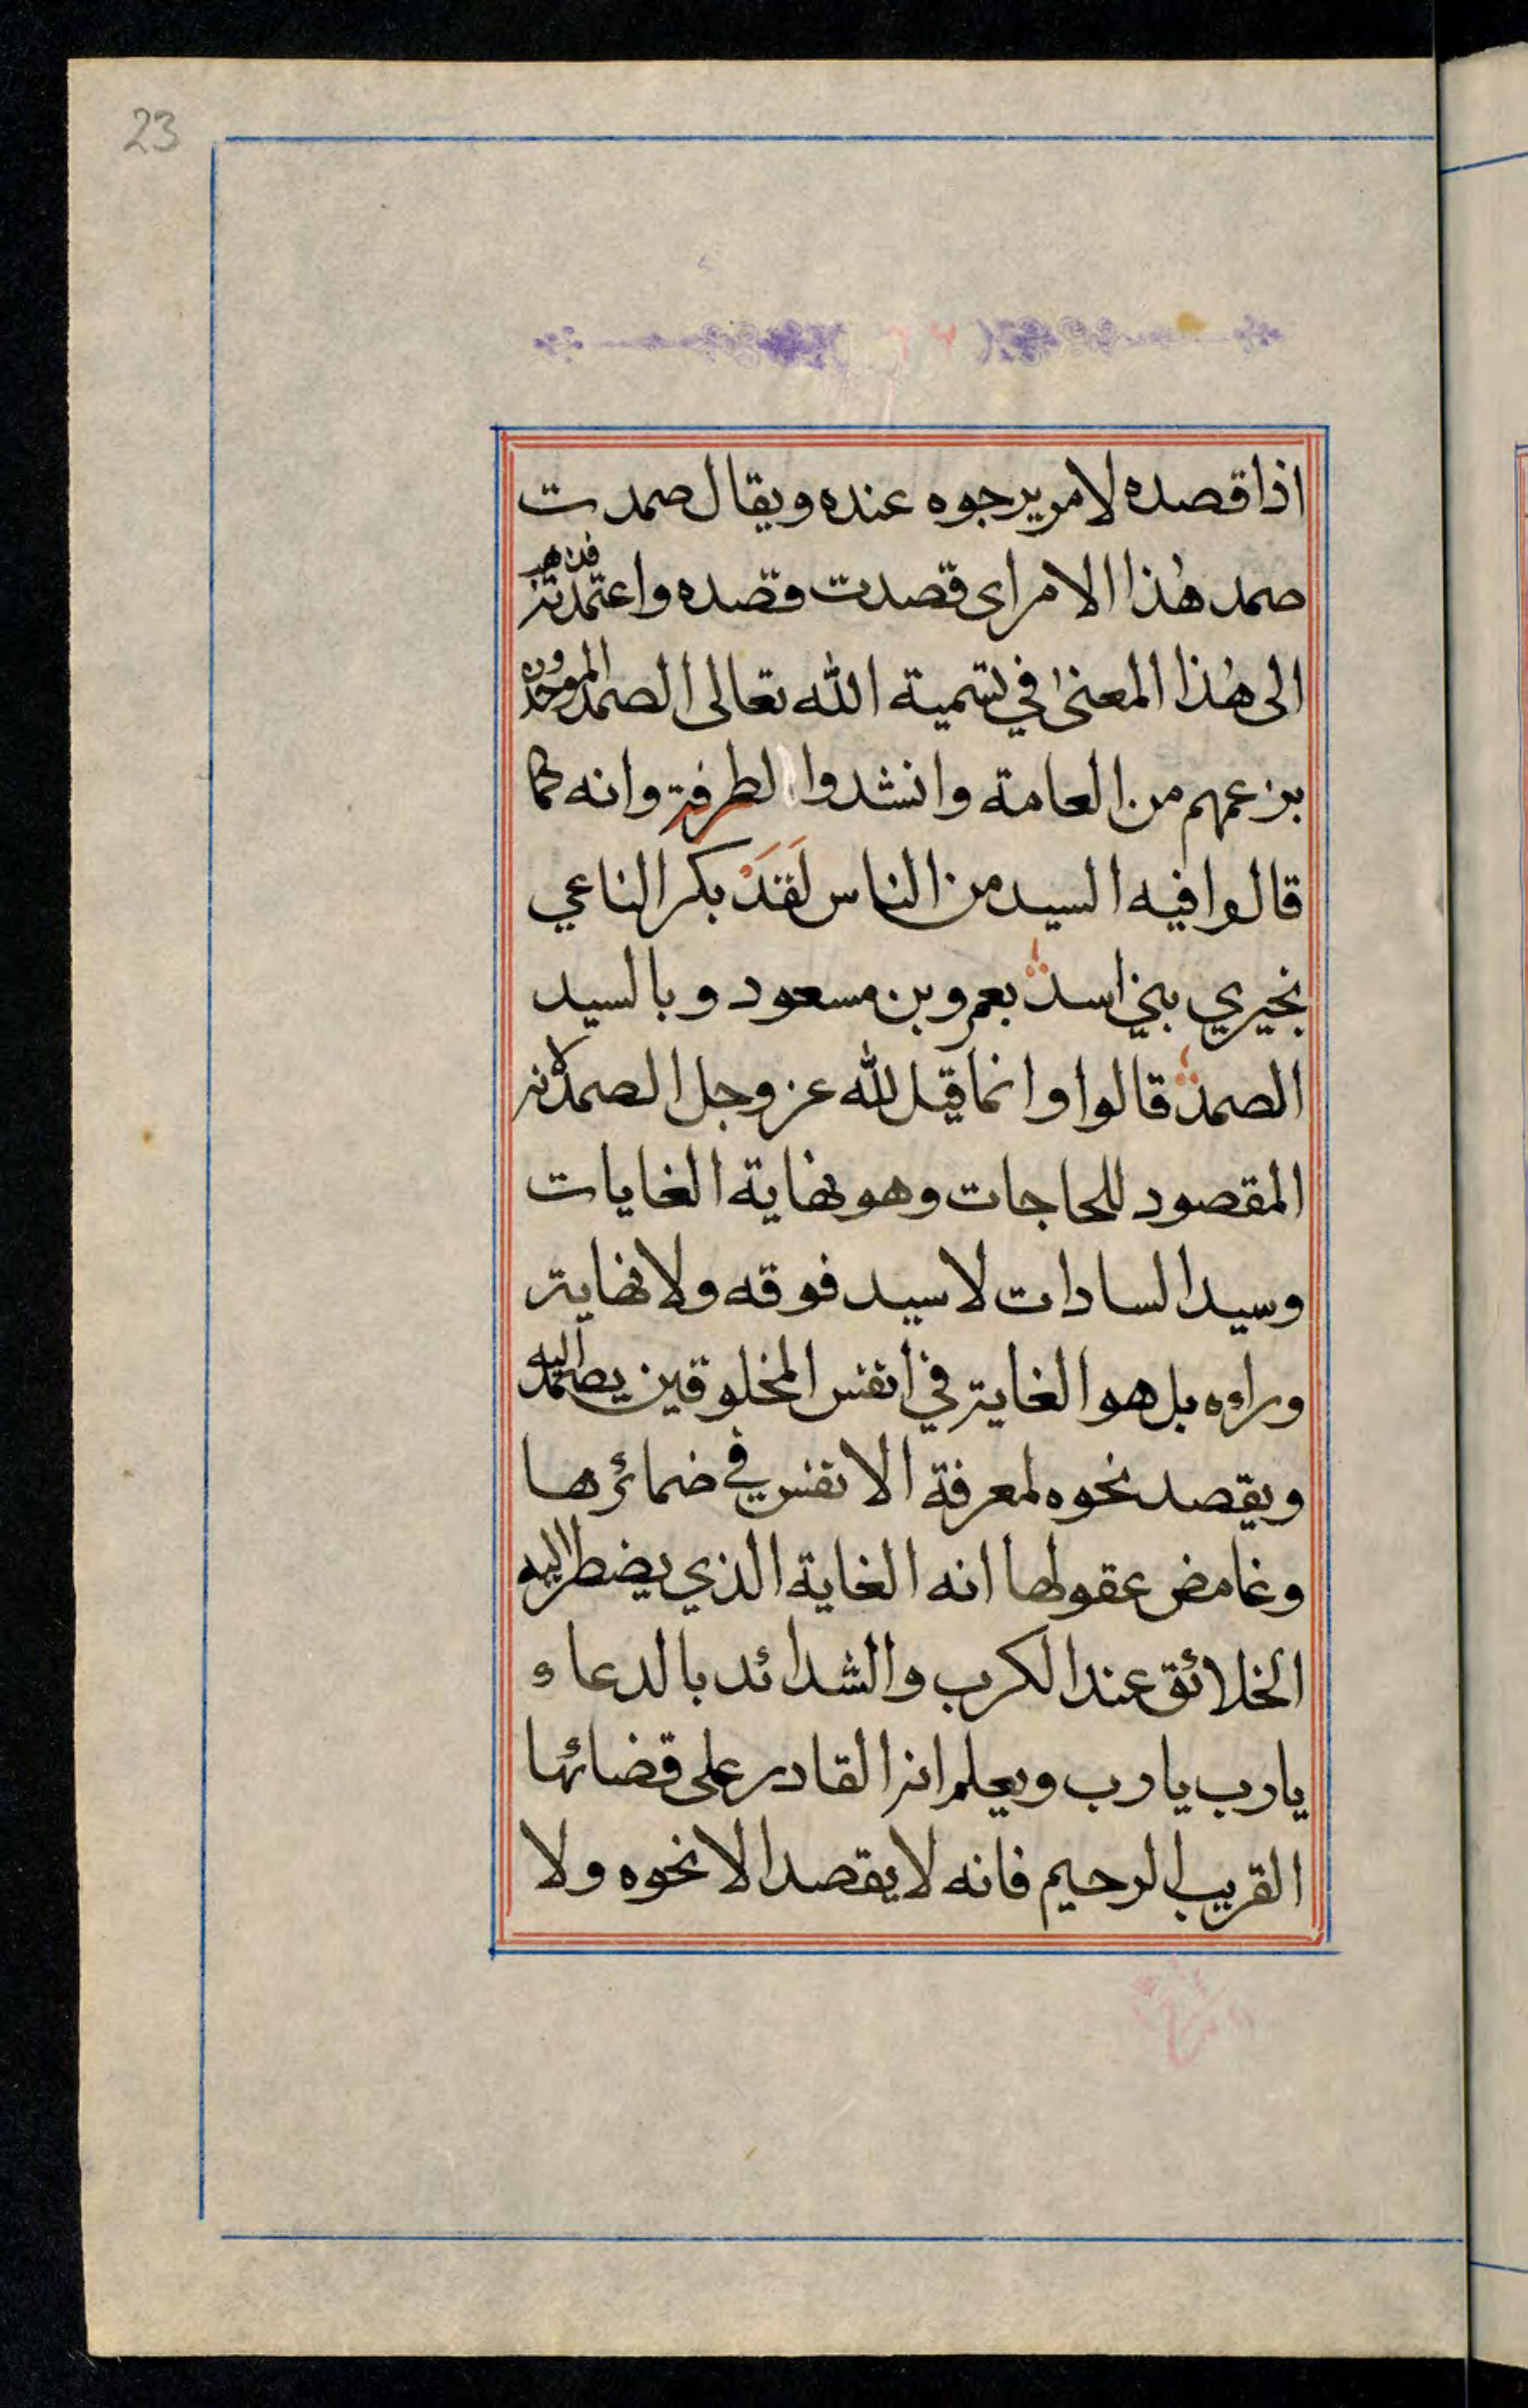 23
اذا قصده لامر يرجوه عنده ويقال صمدت
صمد هٰذا الامر اى قصدت قصده واعتمدته فذهب
الى هٰذا المعنىٰ في تسمية الله تعالى الصمد الموحدون
بزعمهم من العامة وانشدوا لطرفة وانه كما
قالوا فيه السيد من الناس لَقَدْ بكر الناعي
بخيري بني اسد بعمرو بن مسعود وبالسيد
الصمد قالوا وانما قيل لله عز وجل الصمد لانه
المقصود للحاجات وهو نهاية الغايات
وسيد السادات لا سيد فوقه ولا نهاية
وراءه بل هو الغاية في انفس المخلوقين يصمد اليه
ويقصد نحوه لمعرفة الانفس في ضمائرها
وغامض عقولها انه الغاية الذي يضطر اليه
الخلائق عند الكرب والشدائد بالدعاء
يا رب يا رب ويعلم انه القادر على قضائها
القريب الرحيم فانه لا يقصد الا نحوه ولا